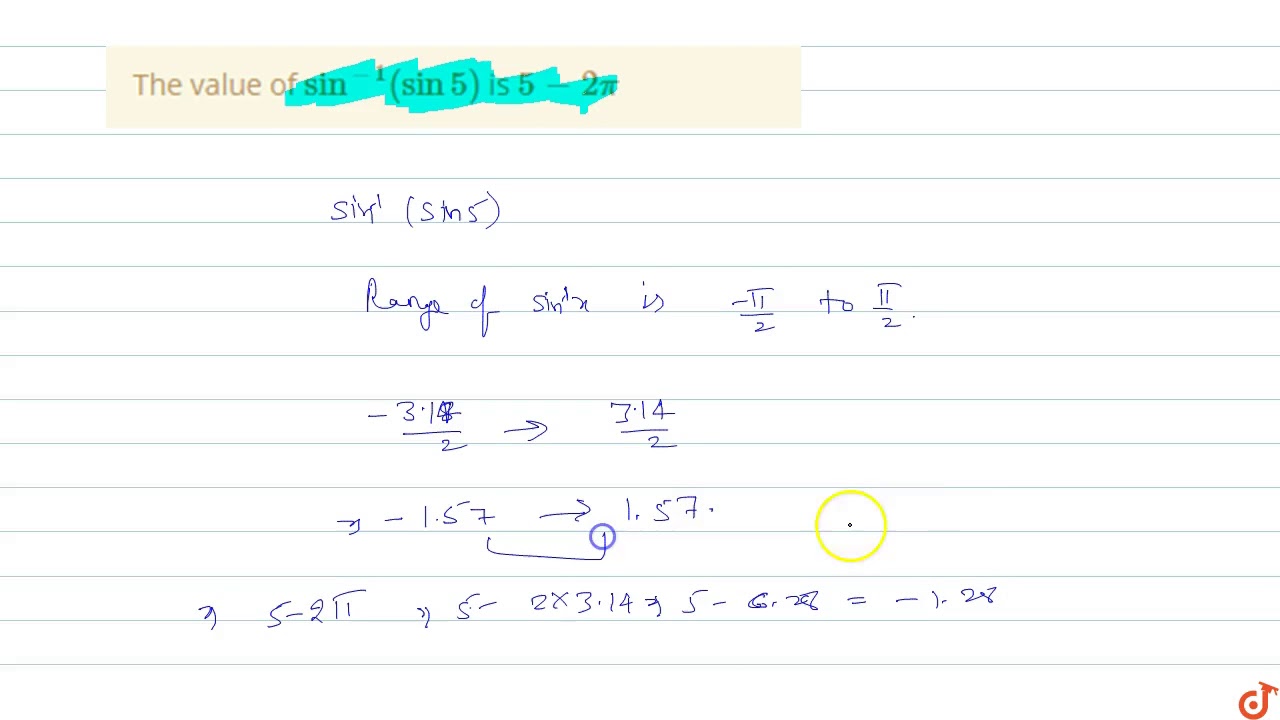 The value of sin⁻¹(sin 5) is 5 − 2π
sin⁻¹ (sin 5)
Range of sin⁻¹x is -π/2 to π/2.
-3.14/2 → 3.14/2
⇒ -1.57 → 1.57.
⇒ 5-2π ⇒ 5- 2×3.14 ⇒ 5- 6.28 = -1.28